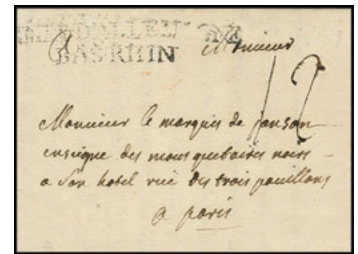 BAS RHIN
A Monsieur
12
Monsieur le marquis de janson
enseigne des mousquetaires noirs
a son hotel rue des trois pavillons
a paris